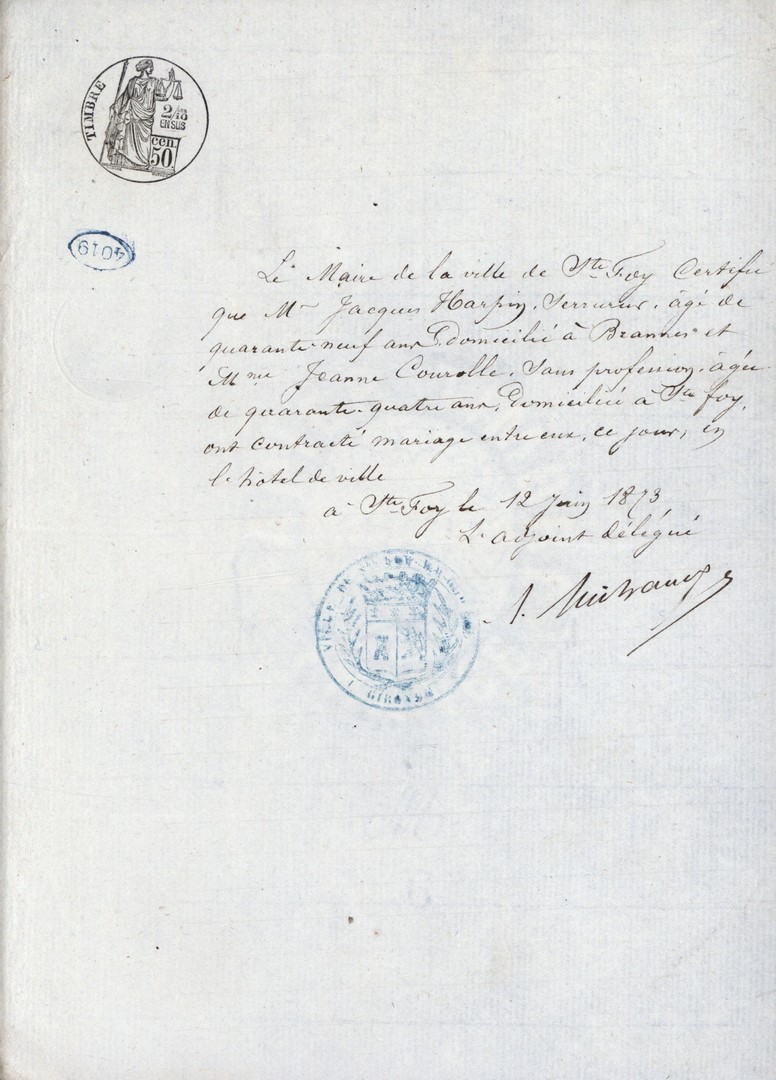 TIMBRE
2/10
EN SUS
CEN.
50
4019
Le Maire de la ville de Ste Foy Certifie
que Mr Jacques Harpin, Serrurier, âgé de
quarante-neuf ans, Domicilié à Brannes et
Mme Jeanne Courolle, Sans profession, âgée
de quarante-quatre ans, Domiciliée à Ste foy,
ont contracté mariage entre eux, ce jour, en
l'hôtel de ville
à Ste Foy le 12 Juin 1873
L'adjoint délégué
VILLE DE
GIRONDE